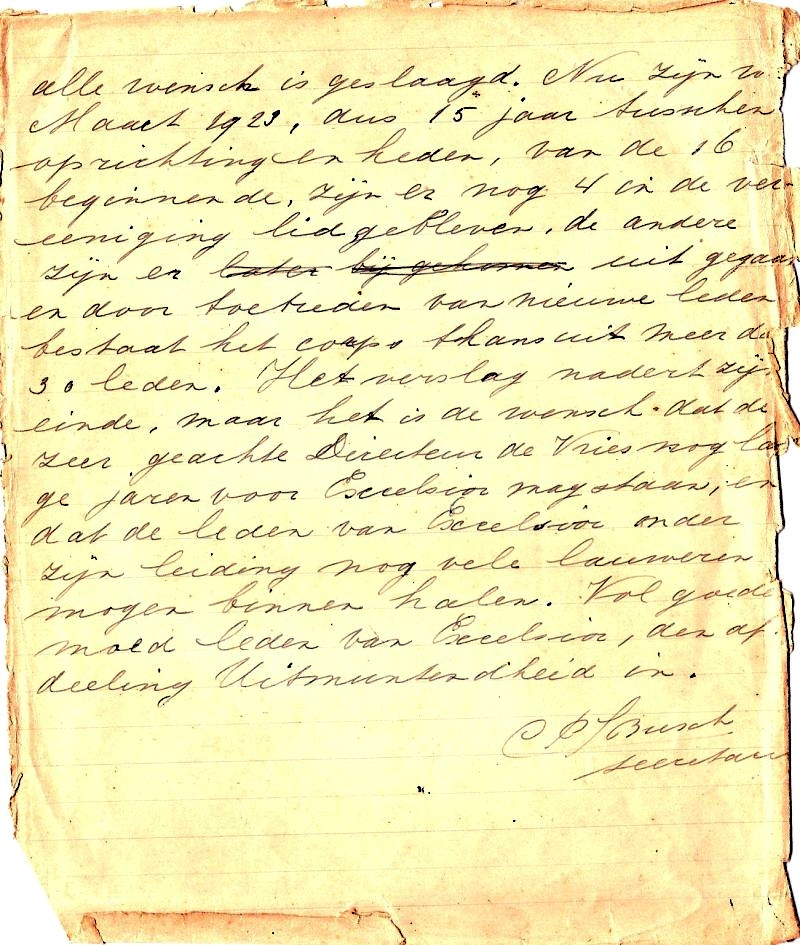 alle wensch is geslaagd. Nu zijn w
Maart 1923, dus 15 jaar tusschen
oprichting en heden, van de 16
beginnende, zijn er nog 4 in de ver-
eeniging lid gebleven, de andere
zijn er later bij gekomen uit gegaan
en door toetreden van nieuwe leden
bestaat het corps thans uit meer da
30 leden. Het verslag nadert zijn
einde, maar het is de wensch dat de
zeer geachte Directeur de Vries nog lan
ge jaren voor Excelsior mag staan, en
dat de leden van Excelsior onder
zijn leiding nog vele lauweren
mogen binnen halen. Vol goede
moed leden van Excelsior, den af-
deeling Uitmuntendheid in.
Busch
secretaris